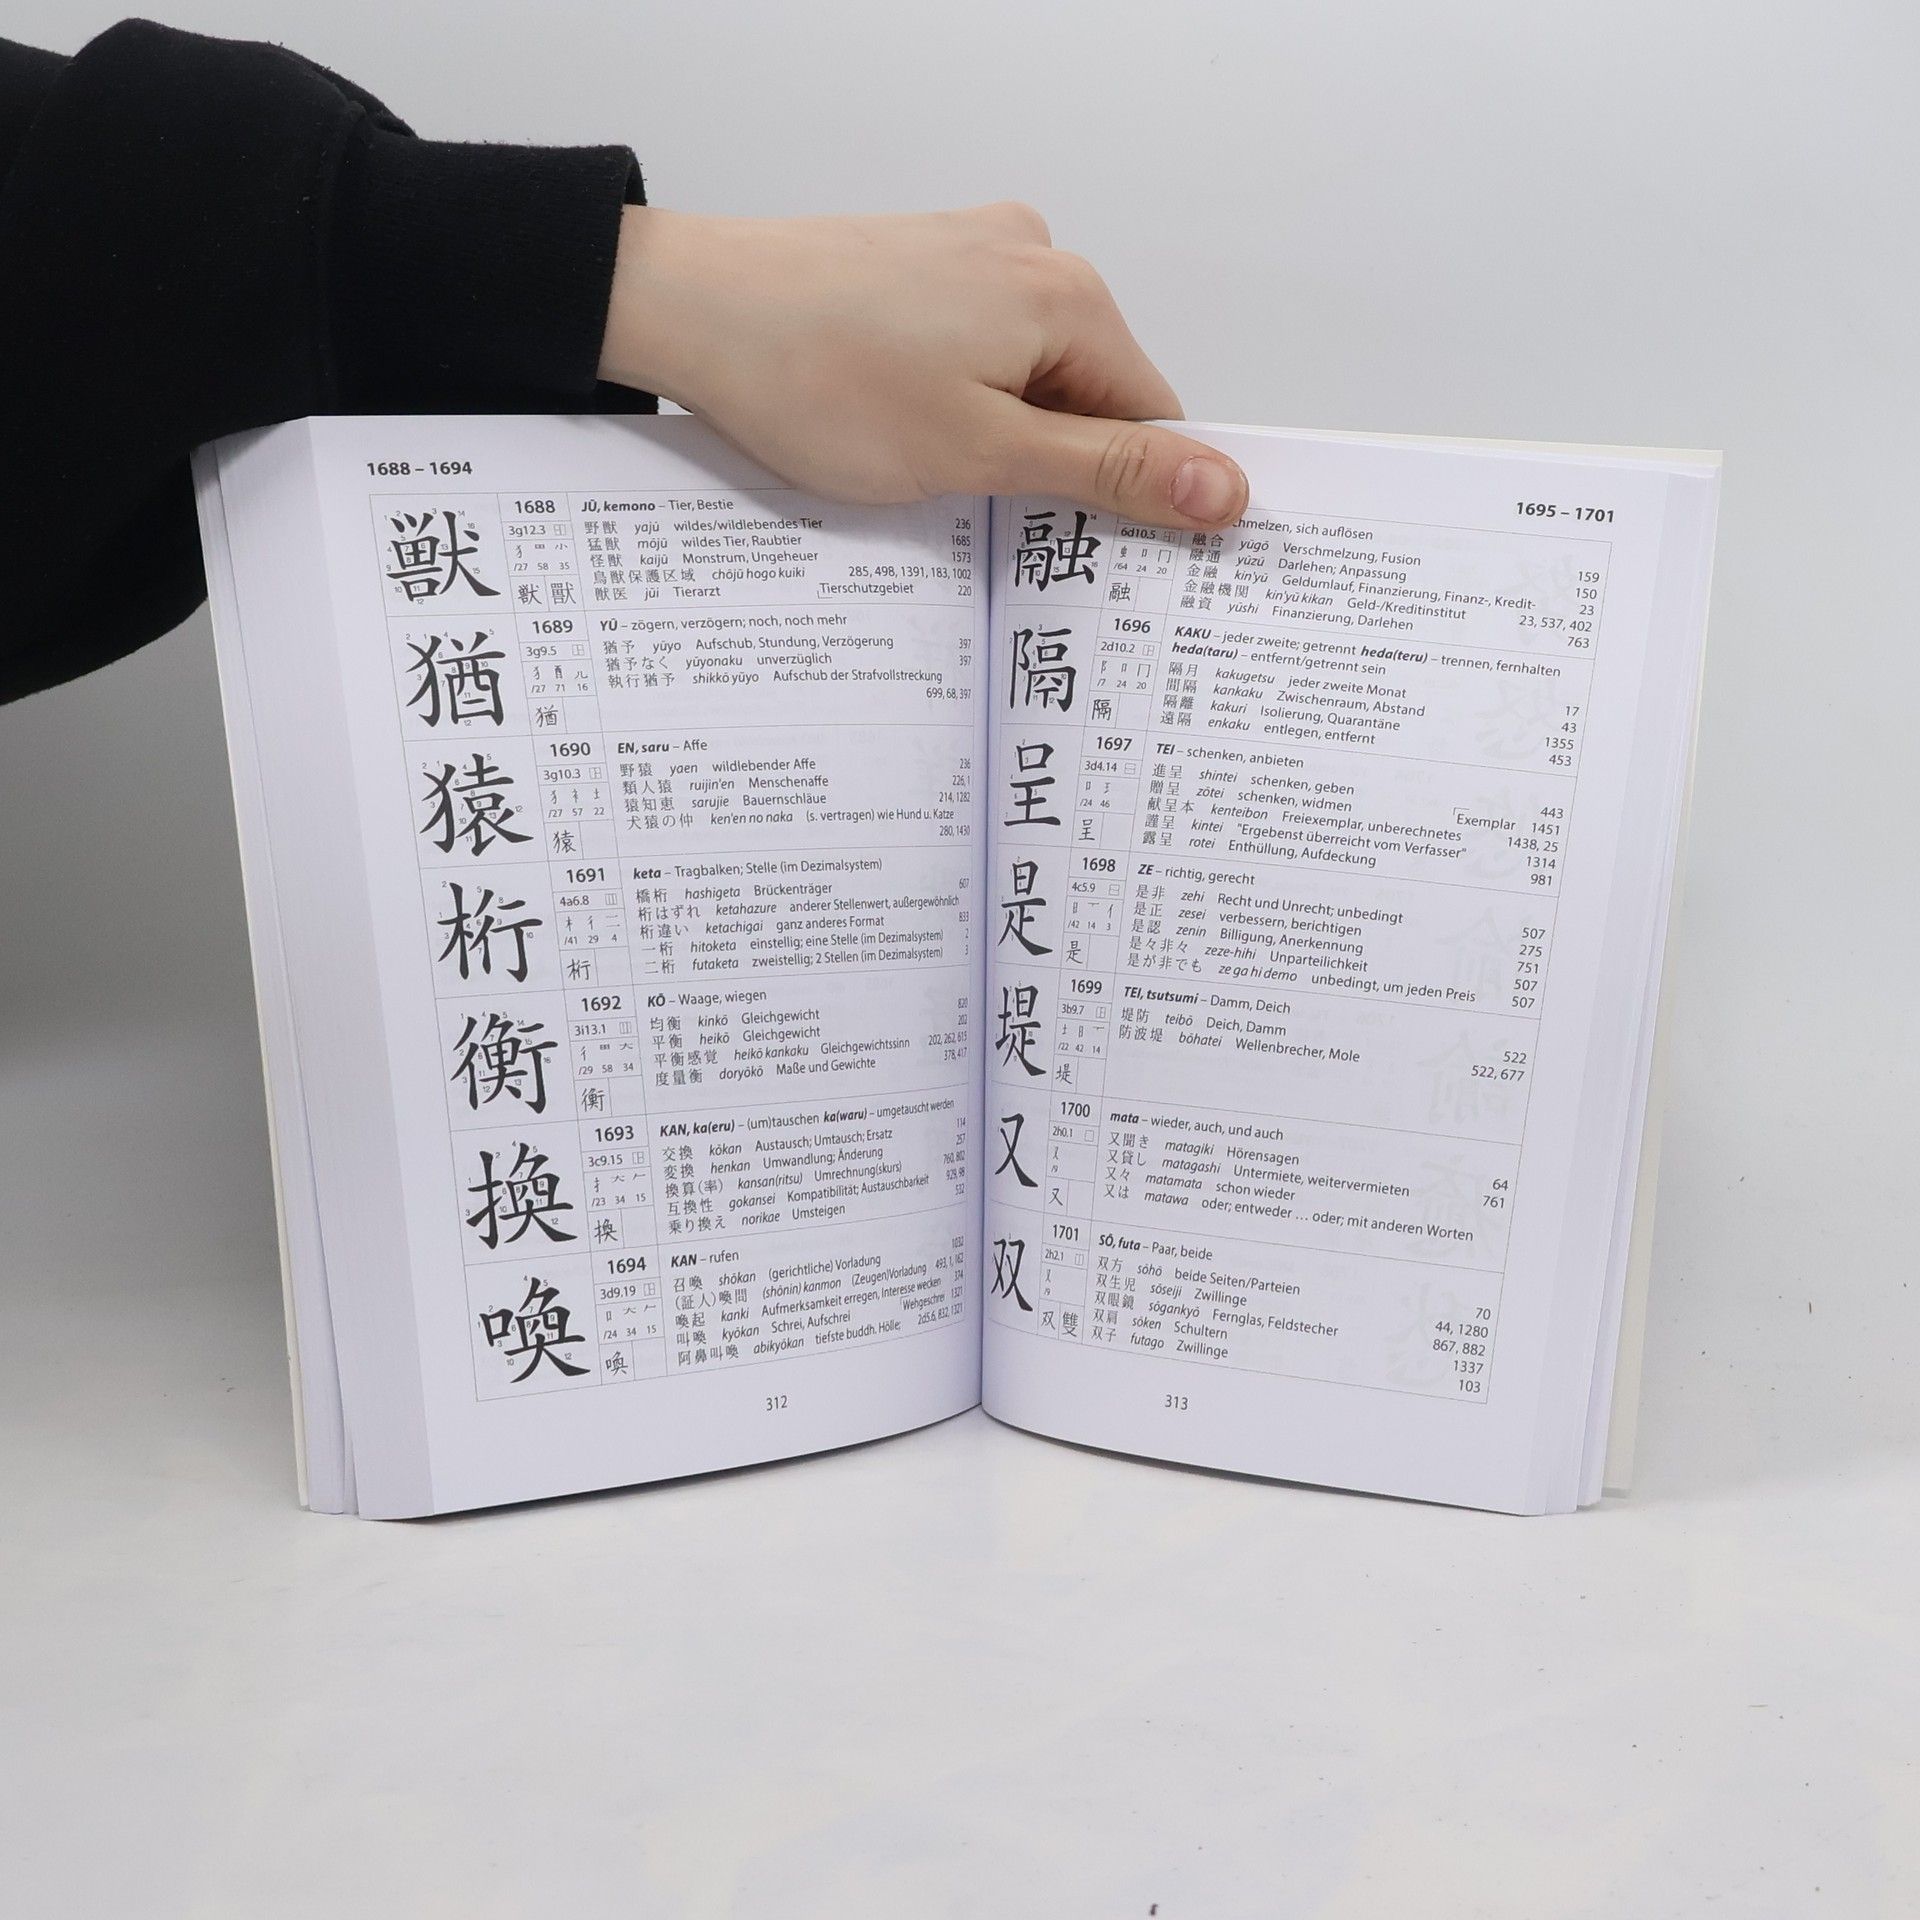 1688 – 1694
獣
1688
JŪ, kemono – Tier, Bestie
3g12.3
野獣 yajū wildes/wildlebendes Tier 236
猛獣 mōjū wildes Tier, Raubtier 1685
怪獣 kaijū Monstrum, Ungeheuer 1573
鳥獣保護区域 chōjū hogo kuiki 285, 498, 1391, 183, 1002
Tierschutzgebiet
獣医 jūi Tierarzt 220
/27 58 35
獣 獸
猶
1689
YŪ – zögern, verzögern; noch, noch mehr
3g9.5
猶予 yūyo Aufschub, Stundung, Verzögerung 397
猶予なく yūyonaku unverzüglich 397
執行猶予 shikkō yūyo Aufschub der Strafvollstreckung
699, 68, 397
/27 71 16
猶
猿
1690
EN, saru – Affe
3g10.3
野猿 yaen wildlebender Affe 236
類人猿 ruijin'en Menschenaffe 226, 1
猿知恵 sarujie Bauernschläue 214, 1282
犬猿の仲 ken'en no naka (s. vertragen) wie Hund u. Katze
280, 1430
/27 57 22
猿
桁
1691
keta – Tragbalken; Stelle (im Dezimalsystem)
4a6.8
橋桁 hashigeta Brückenträger 607
桁はずれ ketahazure anderer Stellenwert, außergewöhnlich
桁違い ketachigai ganz anderes Format 833
一桁 hitoketa einstellig; eine Stelle (im Dezimalsystem) 2
二桁 futaketa zweistellig; 2 Stellen (im Dezimalsystem) 3
/41 29 4
桁
衡
1692
KŌ – Waage, wiegen
3i13.1
均衡 kinkō Gleichgewicht 820
平衡 heikō Gleichgewicht 202
平衡感覚 heikō kankaku Gleichgewichtssinn 202, 262, 615
度量衡 doryōkō Maße und Gewichte 378, 417
/29 58 34
衡
換
1693
KAN, ka(eru) – (um)tauschen ka(waru) – umgetauscht werden
3c9.15
交換 kōkan Austausch; Umtausch; Ersatz 114
変換 henkan Umwandlung; Änderung 257
換算(率) kansan(ritsu) Umrechnung(skurs) 760, 802
互換性 gokansei Kompatibilität; Austauschbarkeit 929, 98
乗り換え norikae Umsteigen 532
/23 34 15
換
喚
1694
KAN – rufen
3d9.19
召喚 shōkan (gerichtliche) Vorladung 1032
(証人)喚問 (shōnin) kanmon (Zeugen)Vorladung 493, 1, 162
喚起 kanki Aufmerksamkeit erregen, Interesse wecken 374
叫喚 kyōkan Schrei, Aufschrei 1321
Wehgeschrei
阿鼻叫喚 abikyōkan tiefste buddh. Hölle; 2d5.6, 832, 1321
/24 34 15
喚
312
1695 – 1701
融
chmelzen, sich auflösen
6d10.5
融合 yūgō Verschmelzung, Fusion 159
融通 yūzū Darlehen; Anpassung 150
金融 kin'yū Geldumlauf, Finanzierung, Finanz-, Kredit- 23
金融機関 kin'yū kikan Geld-/Kreditinstitut 23, 537, 402
融資 yūshi Finanzierung, Darlehen 763
/64 24 20
融
隔
1696
KAKU – jeder zweite; getrennt heda(teru) – trennen, fernhalten
heda(taru) – entfernt/getrennt sein
2d10.2
隔月 kakugetsu jeder zweite Monat 17
間隔 kankaku Zwischenraum, Abstand 43
隔離 kakuri Isolierung, Quarantäne 1355
遠隔 enkaku entlegen, entfernt 453
/7 24 20
隔
呈
1697
TEI – schenken, anbieten
3d4.14
進呈 shintei schenken, geben 443
贈呈 zōtei schenken, widmen 1451
Exemplar
献呈本 kenteibon Freiexemplar, unberechnetes 1438, 25
謹呈 kintei "Ergebenst überreicht vom Verfasser" 1314
露呈 rotei Enthüllung, Aufdeckung 981
/24 46
呈
是
1698
ZE – richtig, gerecht
4c5.9
是非 zehi Recht und Unrecht; unbedingt 507
是正 zesei verbessern, berichtigen 275
是認 zenin Billigung, Anerkennung 751
是々非々 zeze-hihi Unparteilichkeit 507
是が非でも ze ga hi demo unbedingt, um jeden Preis 507
/42 14 3
是
堤
1699
TEI, tsutsumi – Damm, Deich
3b9.7
堤防 teibō Deich, Damm 522
防波堤 bōhatei Wellenbrecher, Mole 522, 677
/22 42 14
堤
又
1700
mata – wieder, auch, und auch
2h0.1
又聞き matagiki Hörensagen 64
又貸し matagashi Untermiete, weitervermieten 761
又々 matamata schon wieder
又は matawa oder; entweder … oder; mit anderen Worten
/9
又
双
1701
SŌ, futa – Paar, beide
2h2.1
双方 sōhō beide Seiten/Parteien 70
双生児 sōseiji Zwillinge 44, 1280
双眼鏡 sōgankyō Fernglas, Feldstecher 867, 882
双肩 sōken Schultern 1337
双子 futago Zwillinge 103
/9
双 雙
313